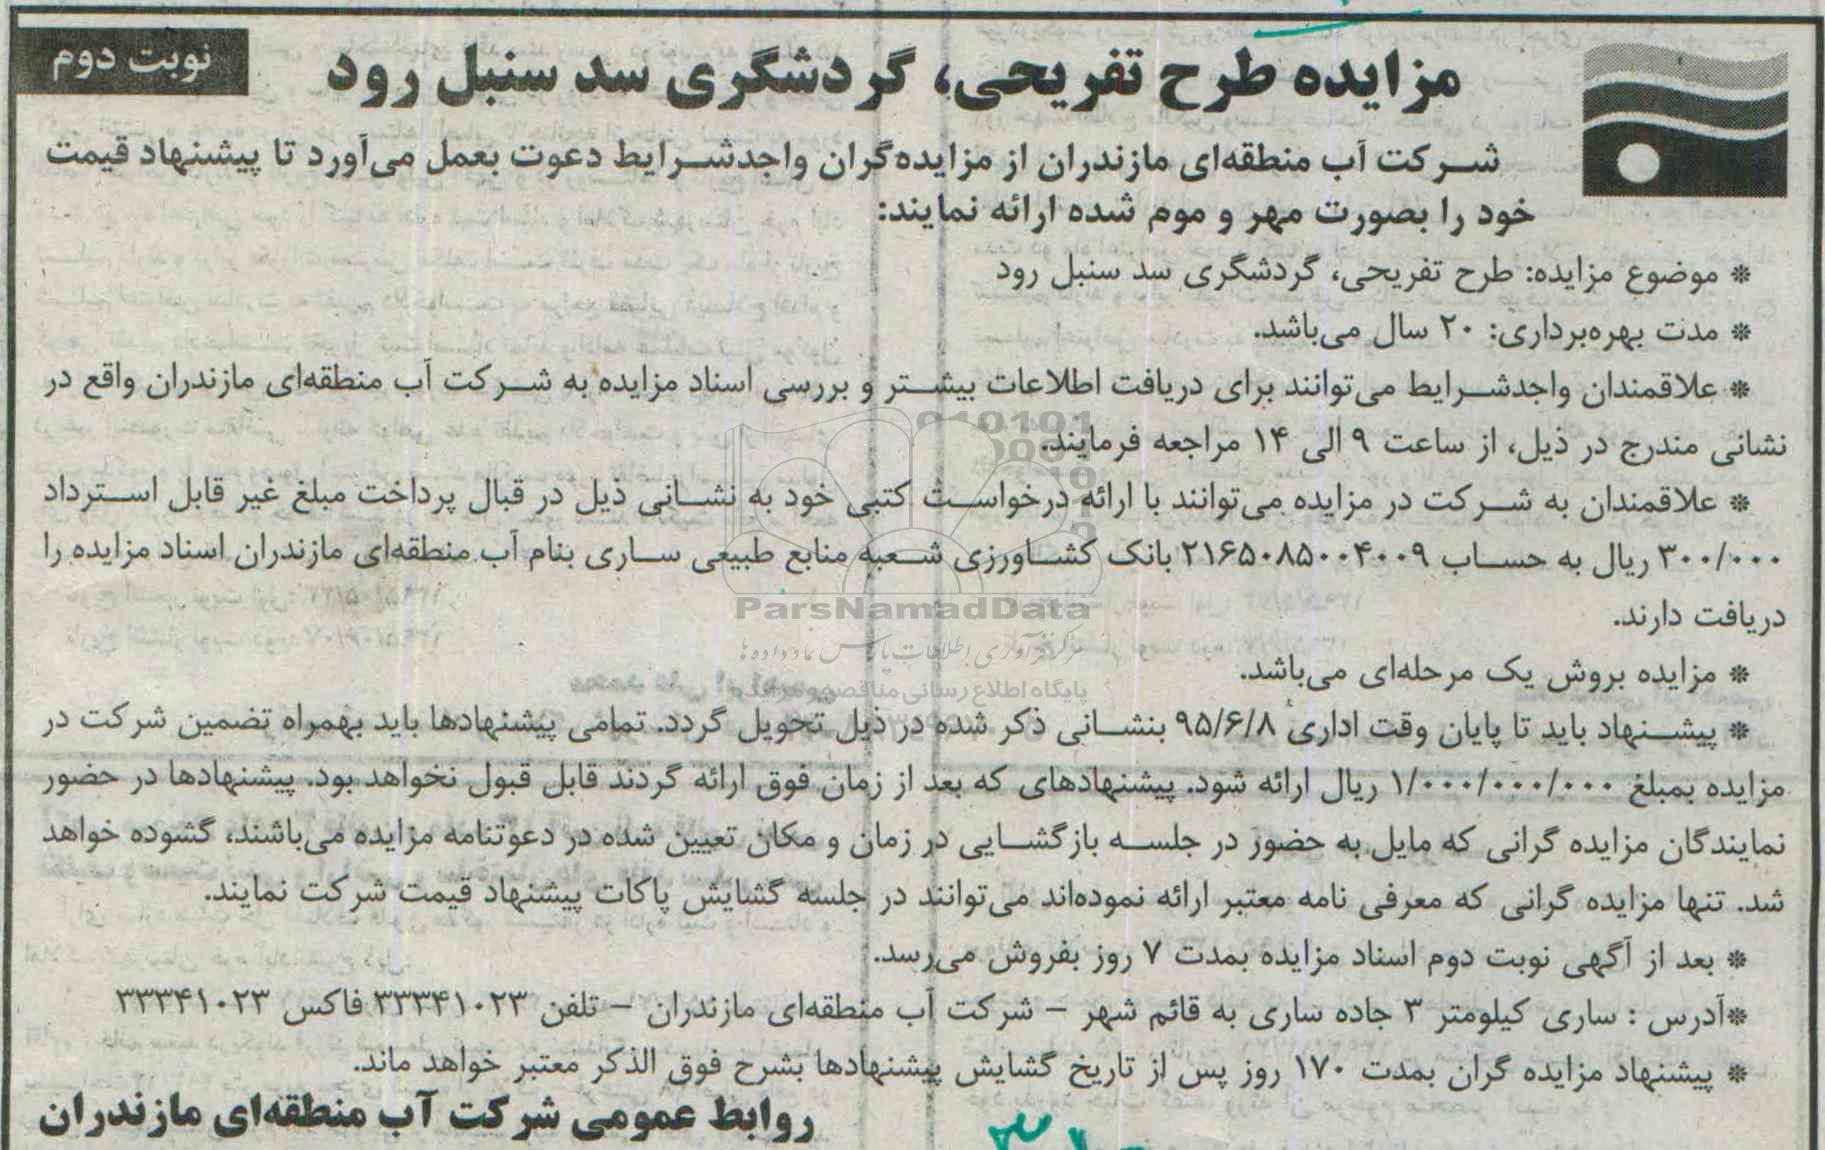 نوبت دوم
مزایده طرح تفریحی، گردشگری سد سنبل رود
شرکت آب منطقه‌ای مازندران از مزایده‌گران واجدشرایط دعوت بعمل می‌آورد تا پیشنهاد قیمت
خود را بصورت مهر و موم شده ارائه نمایند:
* موضوع مزایده: طرح تفریحی، گردشگری سد سنبل رود
* مدت بهره‌برداری: ۲۰ سال می‌باشد.
* علاقمندان واجدشرایط می‌توانند برای دریافت اطلاعات بیشتر و بررسی اسناد مزایده به شرکت آب منطقه‌ای مازندران واقع در
نشانی مندرج در ذیل، از ساعت ۹ الی ۱۴ مراجعه فرمایند.
* علاقمندان به شرکت در مزایده می‌توانند با ارائه درخواست کتبی خود به نشانی ذیل در قبال پرداخت مبلغ غیر قابل استرداد
۳۰۰/۰۰۰ ریال به حساب ۲۱۶۵۰۸۵۰۰۴۰۰۹ بانک کشاورزی شعبه منابع طبیعی ساری بنام آب منطقه‌ای مازندران اسناد مزایده را
دریافت دارند.
* مزایده بروش یک مرحله‌ای می‌باشد.
* پیشنهاد باید تا پایان وقت اداری ۹۵/۶/۸ بنشانی ذکر شده در ذیل تحویل گردد. تمامی پیشنهادها باید بهمراه تضمین شرکت در
مزایده بمبلغ ۱/۰۰۰/۰۰۰/۰۰۰ ریال ارائه شود. پیشنهادهای که بعد از زمان فوق ارائه گردند قابل قبول نخواهد بود. پیشنهادها در حضور
نمایندگان مزایده گرانی که مایل به حضور در جلسه بازگشایی در زمان و مکان تعیین شده در دعوتنامه مزایده می‌باشند، گشوده خواهد
شد. تنها مزایده گرانی که معرفی نامه معتبر ارائه نموده‌اند می‌توانند در جلسه گشایش پاکات پیشنهاد قیمت شرکت نمایند.
* بعد از آگهی نوبت دوم اسناد مزایده بمدت ۷ روز بفروش می‌رسد.
*آدرس : ساری کیلومتر ۳ جاده ساری به قائم شهر – شرکت آب منطقه‌ای مازندران – تلفن ۳۳۳۴۱۰۲۳ فاکس ۳۳۳۴۱۰۲۳
* پیشنهاد مزایده گران بمدت ۱۷۰ روز پس از تاریخ گشایش پیشنهادها بشرح فوق الذکر معتبر خواهد ماند.
روابط عمومی شرکت آب منطقه‌ای مازندران
ParsNamadData
مرکز فرآوری اطلاعات پارس نماد داده‌ها